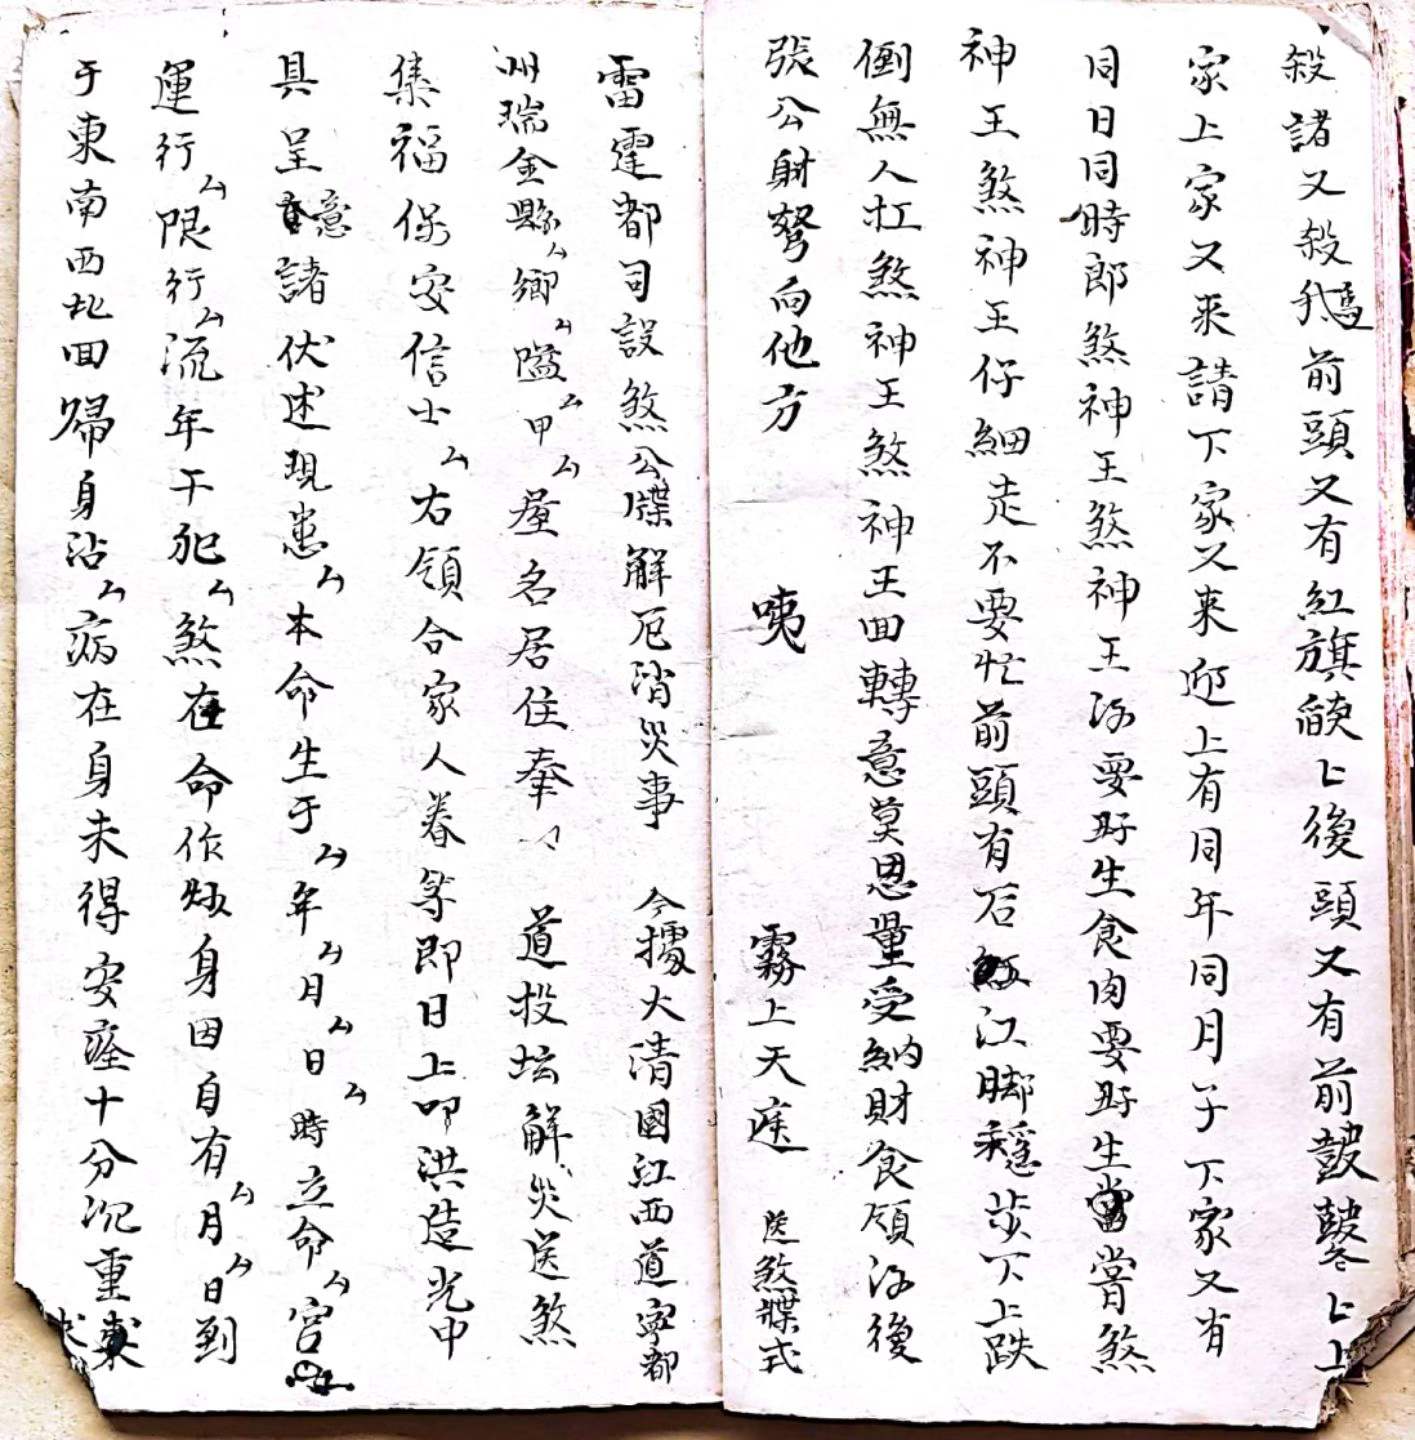 殺諸又殺我為前頭又有紅旗
後頭又有前鼓鼕
家上家又来請下家又来迎上有同年同月午下家又有
同日同時郎煞神王煞神王汝要好生食肉要好生當嘗煞
神王煞神王仔細走不要忙前頭有石江脚穩步下上跌
倒無人扛煞神王煞神王回轉意莫恩量受納財食領汝後
張公射弩向他方　咦　霧上天庭　送煞牒式
雷霆都司設煞公牒解厄消災事　今據大清國江西道寧都
州瑞金縣厶鄉厶隘厶甲厶屋名居住奉　道投坛解災送煞
集福保安信士厶右領合家人眷等即日上叩洪造光中
具呈意諸伏述現患厶本命生于厶年厶月厶日厶時立命厶宮
運行厶限行厶流年干犯厶煞在命作身因自有厶月厶日到
于東南西北回歸身沾厶病在身未得安痊十分沉重